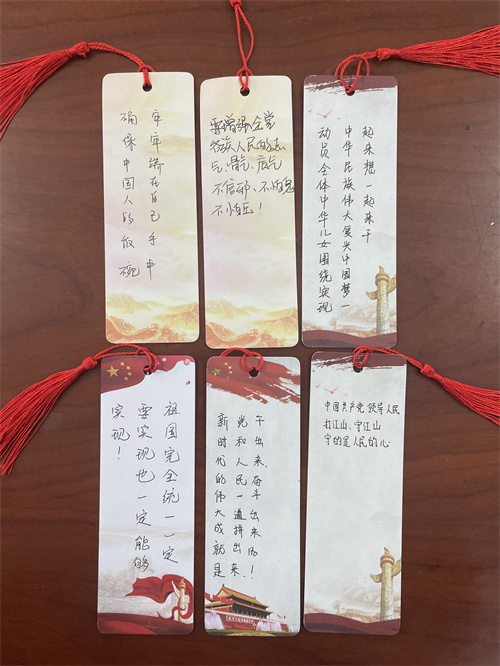 确保中国人的饭碗
牢牢端在自己手中
要增强全党
各族人民的志
气、骨气、底气
不信邪、不怕鬼
不怕压！
动员全体中华儿女围绕实现
中华民族伟大复兴中国梦一
起来想一起来干
祖国完全统一一定
要实现也一定能够
实现！
新时代的伟大成就是
党和人民一道拼出来、
干出来，奋斗出来的！
中国共产党领导人民
打江山、守江山
守的是人民的心